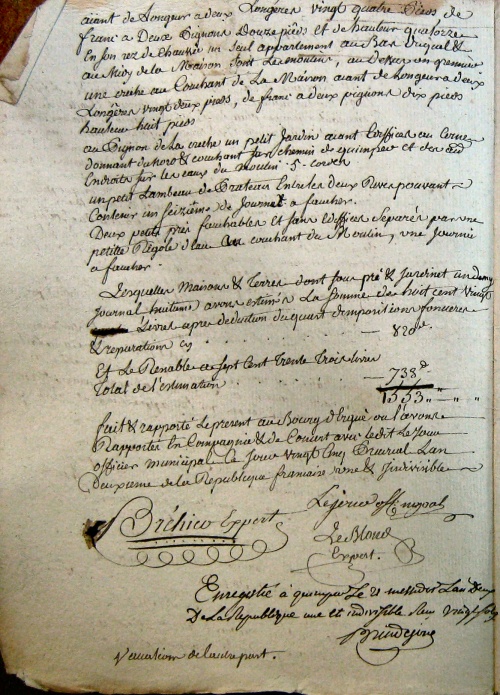 aiant de Longueur a deux Longeres vingt quatre Pieds de
franc a Deux Pignons Douze pieds et de hauteur quatorze
En son rez de Chaussée un seul appartement au Bas duquel &
au Midy de la Maison sont Le moulin, au Dessus un grennier
une creche au Couchant de La Maison aiant de Longueur a deux
Longêres vingt deux pieds, de franc a deux pignons dix pieds
hauteur huit pieds
au Pignon de la creche un petit Jardin aiant Ediffices au Cerne
donnant du nord & couchant sur chemin de quimper et des aud
Endroits sur les eaux du moulin 5. cordes
un petit Lambeau de Prateau Entre les deux Rives pouvant
Contenir un seizième de Journal a faucher.
Deux petits prés fauchables et sans Ediffices Separés par une
petitte Rigole d'eau au couchant du Moulin, une Journée
a faucher.
Lesquelles Maisons & Terres dont sous pré &
journal avons estimés La somme de huit cent vingt
Livres apres deduction du quart d'impositions foncieres
& reparations cy . . . . . . . 820
Et Le Renable a sept Cent Trente Trois livres
738
Total de l'estimation 1553
fait & rapporté Le present au Bourg d'Ergué ou l'avons
Rapporté En Compagnie & de Concert avec ledit Le Jour
officier municipal Le Jour vingt Cinq Prairial Lan
Deuxieme de la Republique francaise une & Indivisible
Bréhico Expert
Le Blond
Expert.
Enregistré à quimper Le 21 messidor Lan Deux
De La Republique une et indivisible Reçu vingt sols